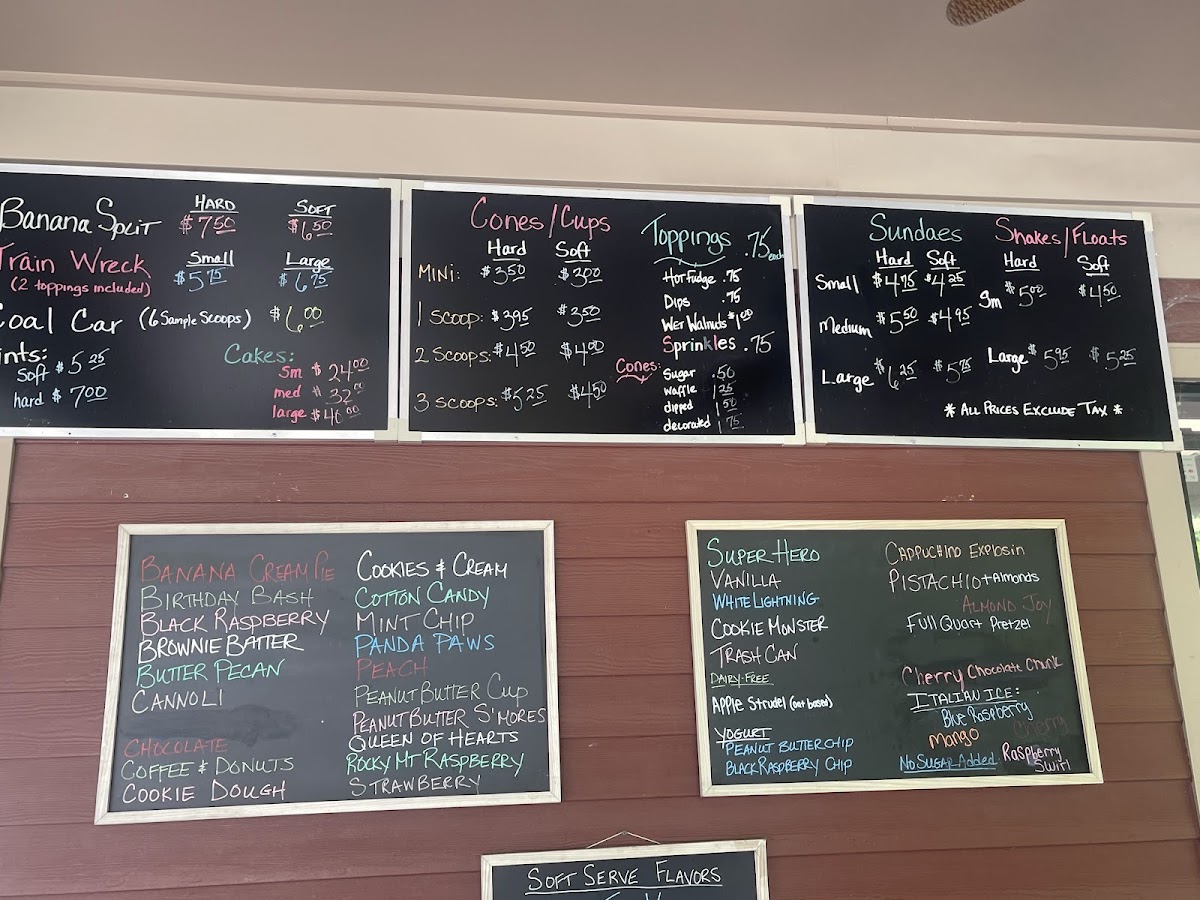 HARD SOFT
Banana Split $7.50 $6.50
Train Wreck Small Large
(2 toppings included) $5.75 $6.75
Coal Car (6 Sample Scoops) $6.00
ints:
Soft $5.25
hard $7.00
Cakes:
Sm $24.00
med $32.00
large $40.00
Cones/Cups
Hard Soft
Mini: $3.50 $3.00
1 Scoop: $3.95 $3.50
2 Scoops: $4.50 $4.00
3 Scoops: $5.25 $4.50
Toppings .75 each
Hot Fudge .75
Dips .75
Wet Walnuts $1.00
Sprinkles .75
Cones:
Sugar .50
Waffle 1.25
dipped 1.50
decorated 1.75
Sundaes
Hard Soft
Small $4.75 $4.25
Medium $5.50 $4.95
Large $6.25 $5.75
Shakes/Floats
Hard Soft
Sm $5.00 $4.50
Large $5.95 $5.25
* All Prices Exclude Tax *
Banana Cream Pie
Birthday Bash
Black Raspberry
Brownie Batter
Butter Pecan
Cannoli
Chocolate
Coffee & Donuts
Cookie Dough
Cookies & Cream
Cotton Candy
Mint Chip
Panda Paws
Peach
Peanut Butter Cup
Peanut Butter S'mores
Queen of Hearts
Rocky Mt Raspberry
Strawberry
Super Hero
Vanilla
White Lightning
Cookie Monster
Trash Can
Dairy-Free
Apple Strudel (oat based)
Yogurt
Peanut Butter Chip
Black Raspberry Chip
Cappuchino Explosin
Pistachio + Almonds
Almond Joy
Full Quart Pretzel
Cherry Chocolate Chunk
Italian Ice:
Blue Raspberry
Mango Cherry
No Sugar Added Raspberry
Swirl
Soft Serve Flavors